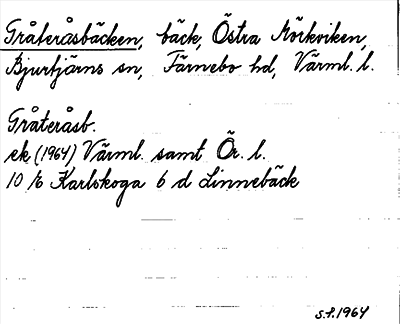 Gråteråsbäcken, bäck, Östra Mörkviken,
Bjurtjärns sn, Färnebo hd, Värml. l.
Gråteråsb.
ek (1964) Värml. samt Ör. l.
10 % Karlskoga 6 d Linnebäck
S.f. 1964